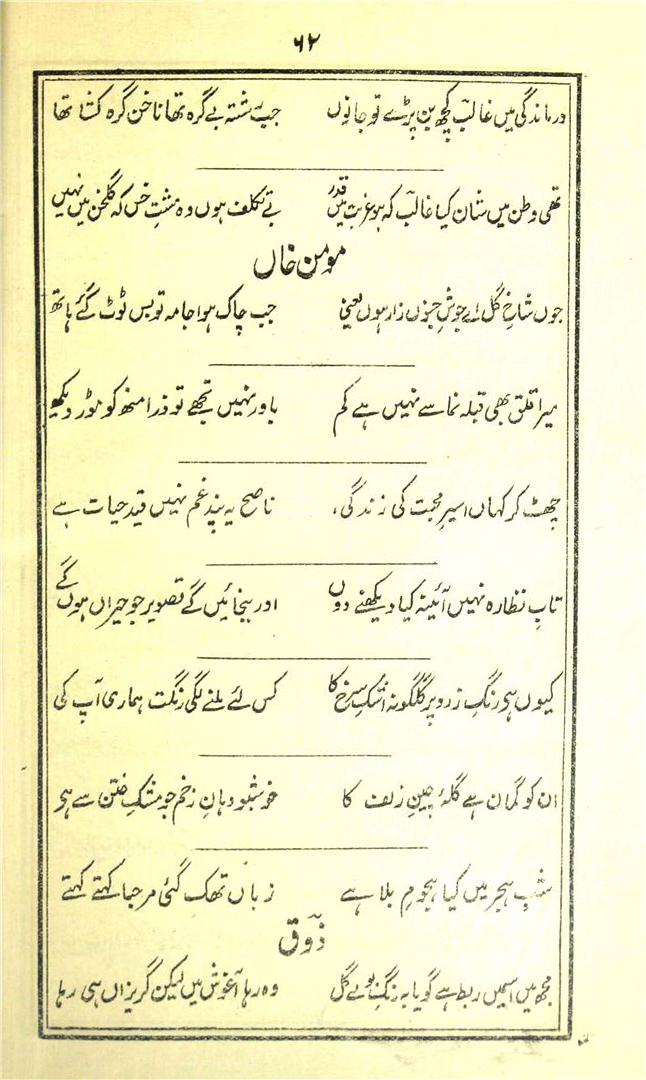 ۶۲
درماندگی میں غالب کچھ بن پڑے تو جانوں جب رشتہ بے گرہ تھا ناخن گرہ کشا تھا
تھی وطن میں شان کیا غالب کہ ہو غربت میں قدر بے تکلف ہوں وہ مشتِ خس کہ گلخن میں نہیں
مومن خاں
جوں شاخِ گل اے جوشِ جنوں زار ہوں یعنی جب چاک ہوا جامہ تو بس ٹوٹ گئے ہاتھ
میرا قلق بھی قبلہ نما سے نہیں ہے کم باور نہیں تجھے تو ذرا منھ کو موڑ دیکھ
چھٹ کر کہاں اسیرِ محبت کی زندگی، ناصح یہ بندِ غم نہیں قیدِ حیات ہے
تابِ نظارہ نہیں آئینہ کیا دیکھنے دوں اور بنجائیں گے تصویر جو حیراں ہوں گے
کیوں ہی رنگِ زرد پر گلگونہ اشکِ سرخ کا کس لئے ملنے لگی رنگت ہماری آپ کی
ان کو گمان ہے گلۂ چینِ زلف کا خوشبو دہانِ زخم جو مشکِ ختن سے ہی
شبِ ہجر میں کیا ہجومِ بلا ہے زباں تھک گئی مرحبا کہتے کہتے
ذوق
مجھ میں اسمیں ربط ہے گویا بہ رنگِ بوئے گل وہ رہا آغوش میں لیکن گریزاں ہی رہا